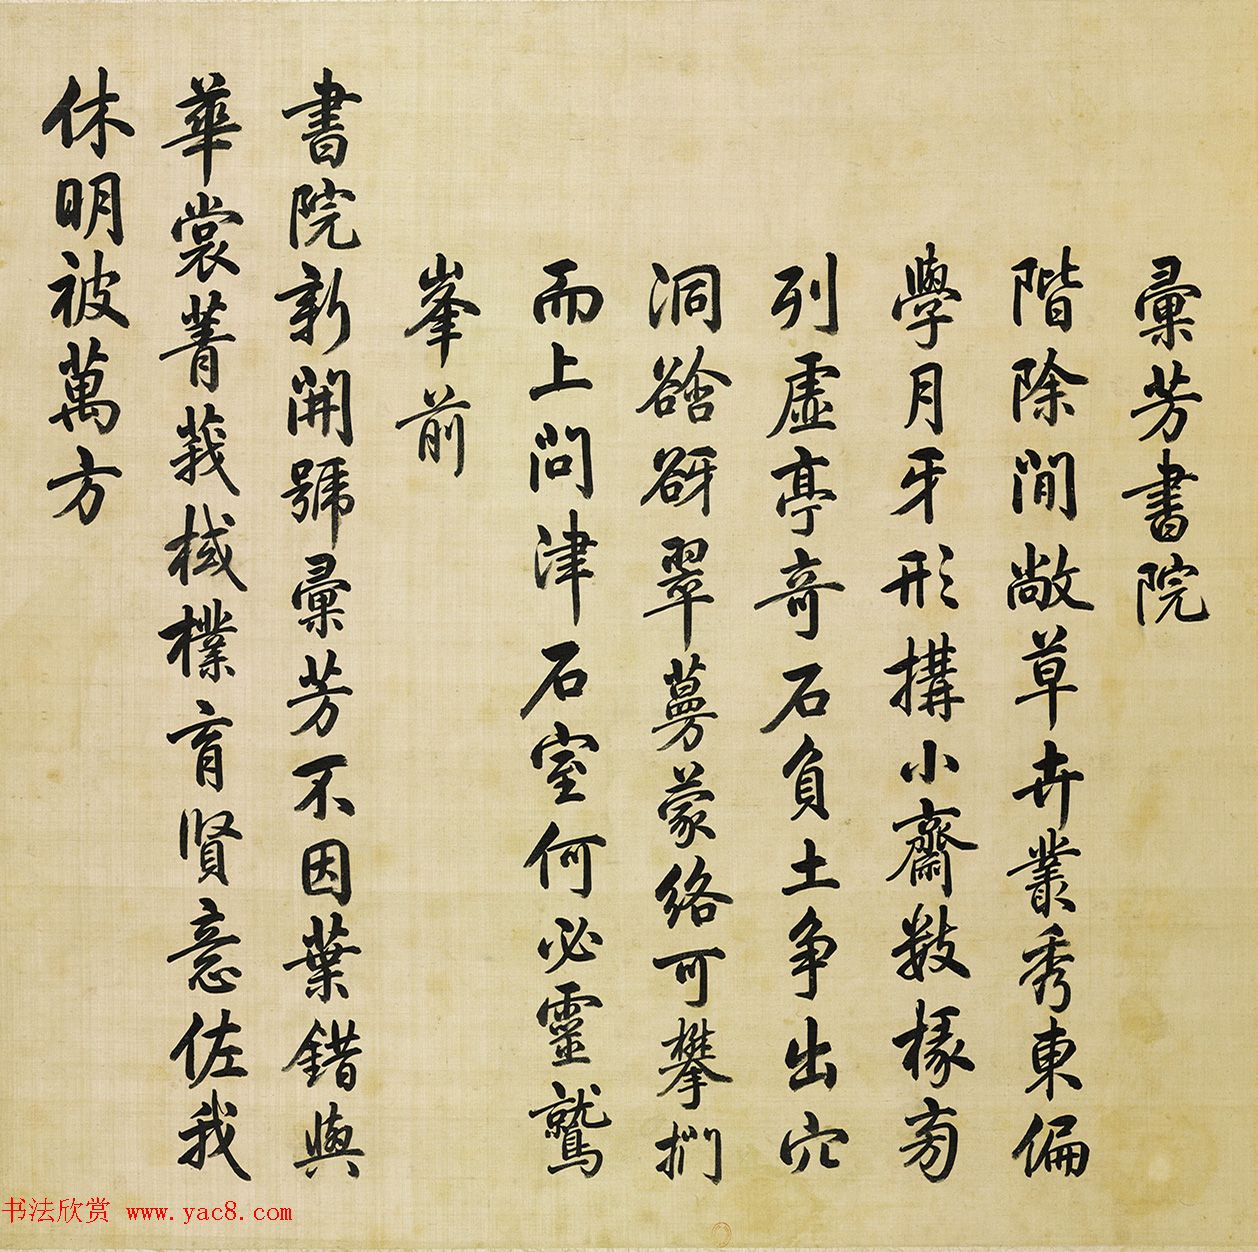 彙芳書院
階除閒敞草卉叢秀東偏
學月牙形構小齋數椽旁
列虛亭奇石負土爭出穴
洞谽谺翠蔓蒙絡可攀捫
而上問津石室何必靈鷲
峯前
書院新開號彙芳不因葉錯與
華裳菁莪棫樸育賢意佐我
休明被萬方
书法欣赏 www.yac8.com